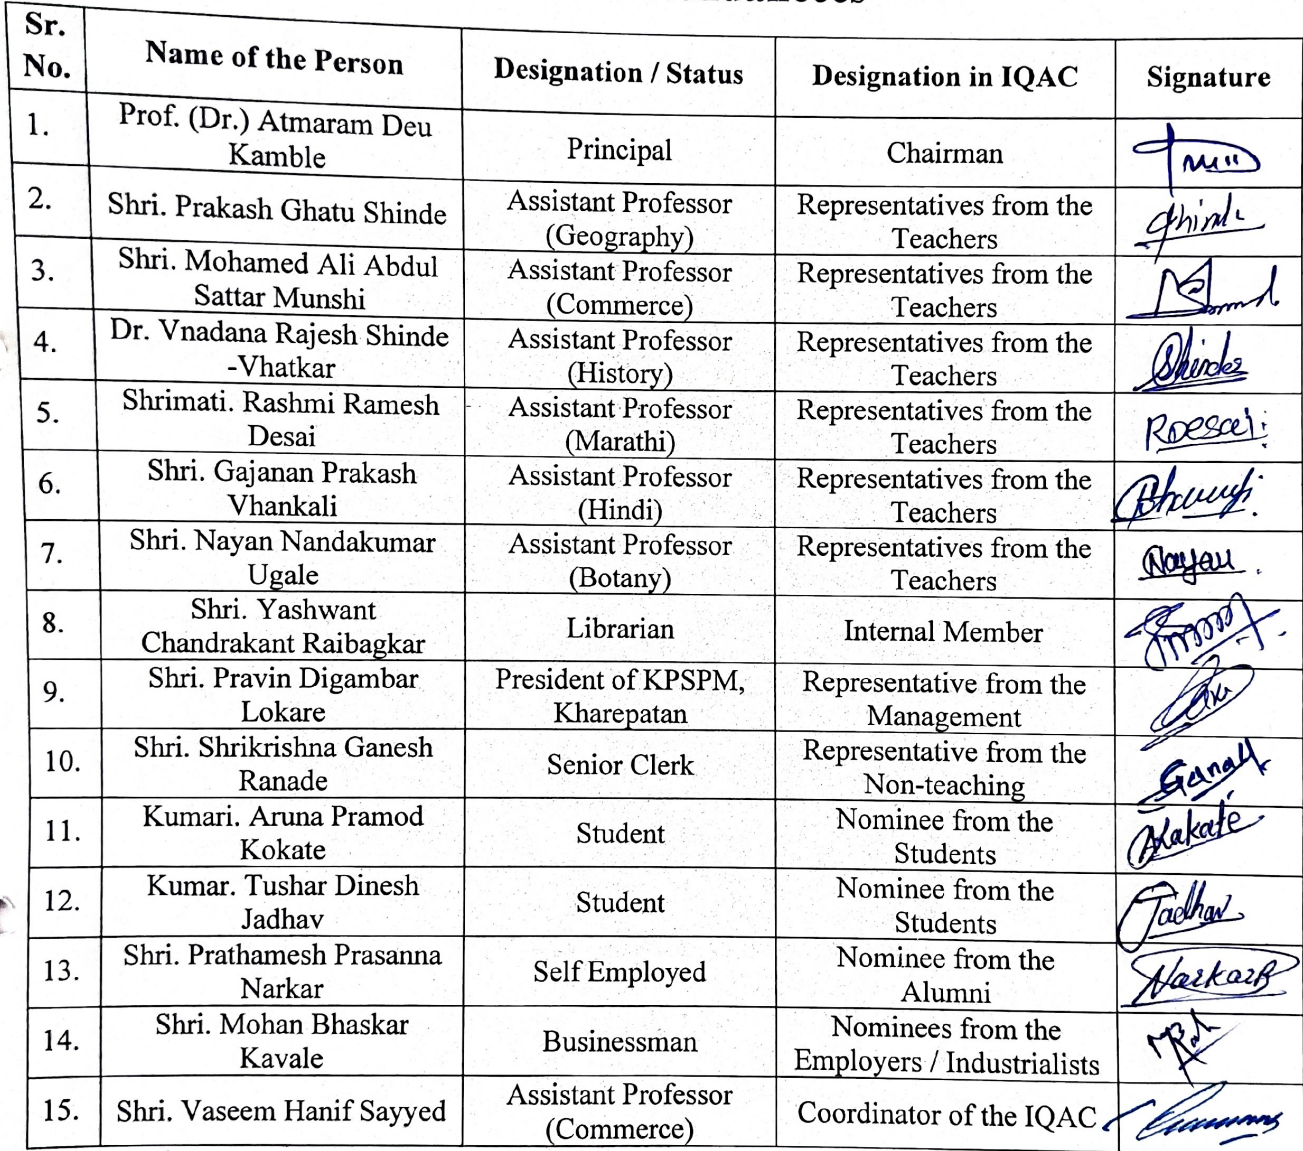 Sr. No. Name of the Person Designation / Status Designation in IQAC Signature
1. Prof. (Dr.) Atmaram Deu Kamble Principal Chairman
2. Shri. Prakash Ghatu Shinde Assistant Professor (Geography) Representatives from the Teachers Shinde
3. Shri. Mohamed Ali Abdul Sattar Munshi Assistant Professor (Commerce) Representatives from the Teachers
4. Dr. Vnadana Rajesh Shinde -Vhatkar Assistant Professor (History) Representatives from the Teachers Shinde
5. Shrimati. Rashmi Ramesh Desai Assistant Professor (Marathi) Representatives from the Teachers RDesai
6. Shri. Gajanan Prakash Vhankali Assistant Professor (Hindi) Representatives from the Teachers
7. Shri. Nayan Nandakumar Ugale Assistant Professor (Botany) Representatives from the Teachers Nayan
8. Shri. Yashwant Chandrakant Raibagkar Librarian Internal Member
9. Shri. Pravin Digambar Lokare President of KPSPM, Kharepatan Representative from the Management
10. Shri. Shrikrishna Ganesh Ranade Senior Clerk Representative from the Non-teaching
11. Kumari. Aruna Pramod Kokate Student Nominee from the Students AKakate
12. Kumar. Tushar Dinesh Jadhav Student Nominee from the Students Jadhav
13. Shri. Prathamesh Prasanna Narkar Self Employed Nominee from the Alumni NarkarP
14. Shri. Mohan Bhaskar Kavale Businessman Nominees from the Employers / Industrialists
15. Shri. Vaseem Hanif Sayyed Assistant Professor (Commerce) Coordinator of the IQAC